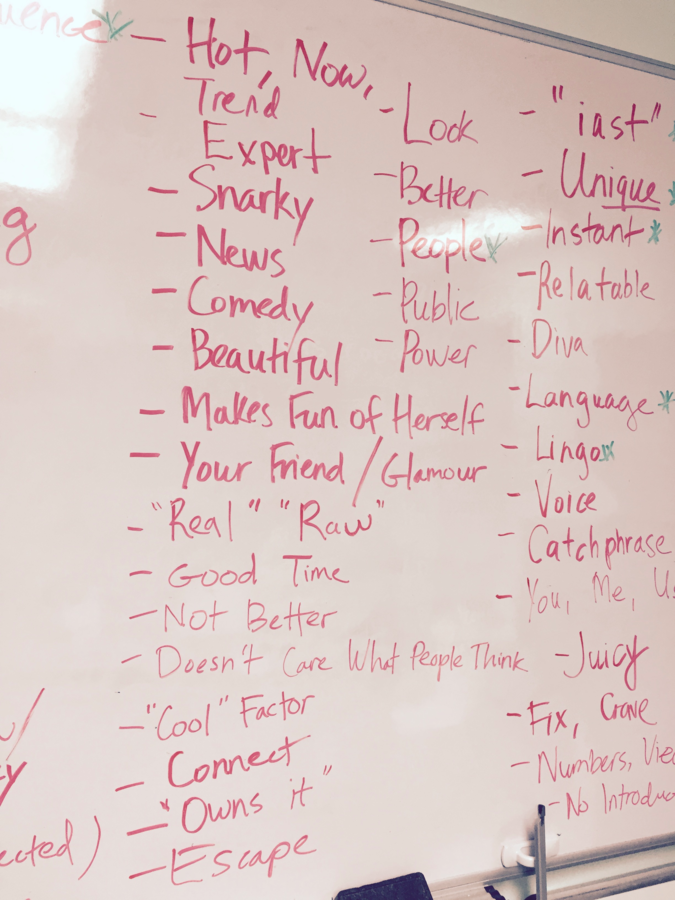 uence
g
- Hot, Now,
Trend
Expert
- Snarky
- News
- Comedy
- Beautiful
- Makes Fun of Herself
- Your Friend / Glamour
- "Real" "Raw"
- Good Time
- Not Better
- Doesn't Care What People Think
- "Cool" Factor
- Connect
- "Owns it"
- Escape
- Look
- Better
- People
- Public
- Power
- "iast"
- Unique
- Instant
- Relatable
- Diva
- Language
- Lingo
- Voice
- Catchphrase
- You, Me, Us
- Juicy
- Fix, Crave
- Numbers, Vie
- No Introduc
ected)